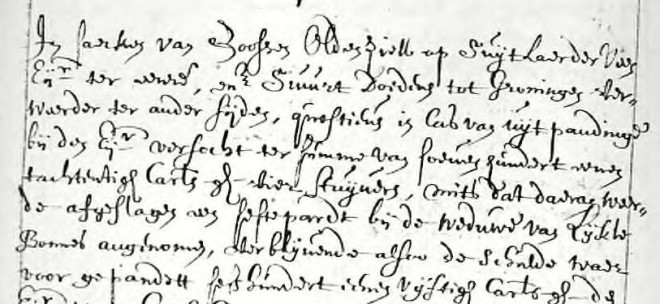 In saecken van Roossen Oldenziell op Suijtlaerder Veen
Eijr ter eenre, ende Siuurt Doedens tot Groningen Ver-
weerder ter ander sijden, questieus in cas van uijt pandinge
bij den Eijr versocht ter summe van soeven hundert eenen
tachtentigh Carls gl vier stuijvers, mits dat daerin wer-
de afgeslagen een peerdt bij de weduwe van Eijcke
Bonnes angenomen, Verblijvende alsoo de schulde waer
voor gepandett ses hundert eenen vijftigh Carls gl de